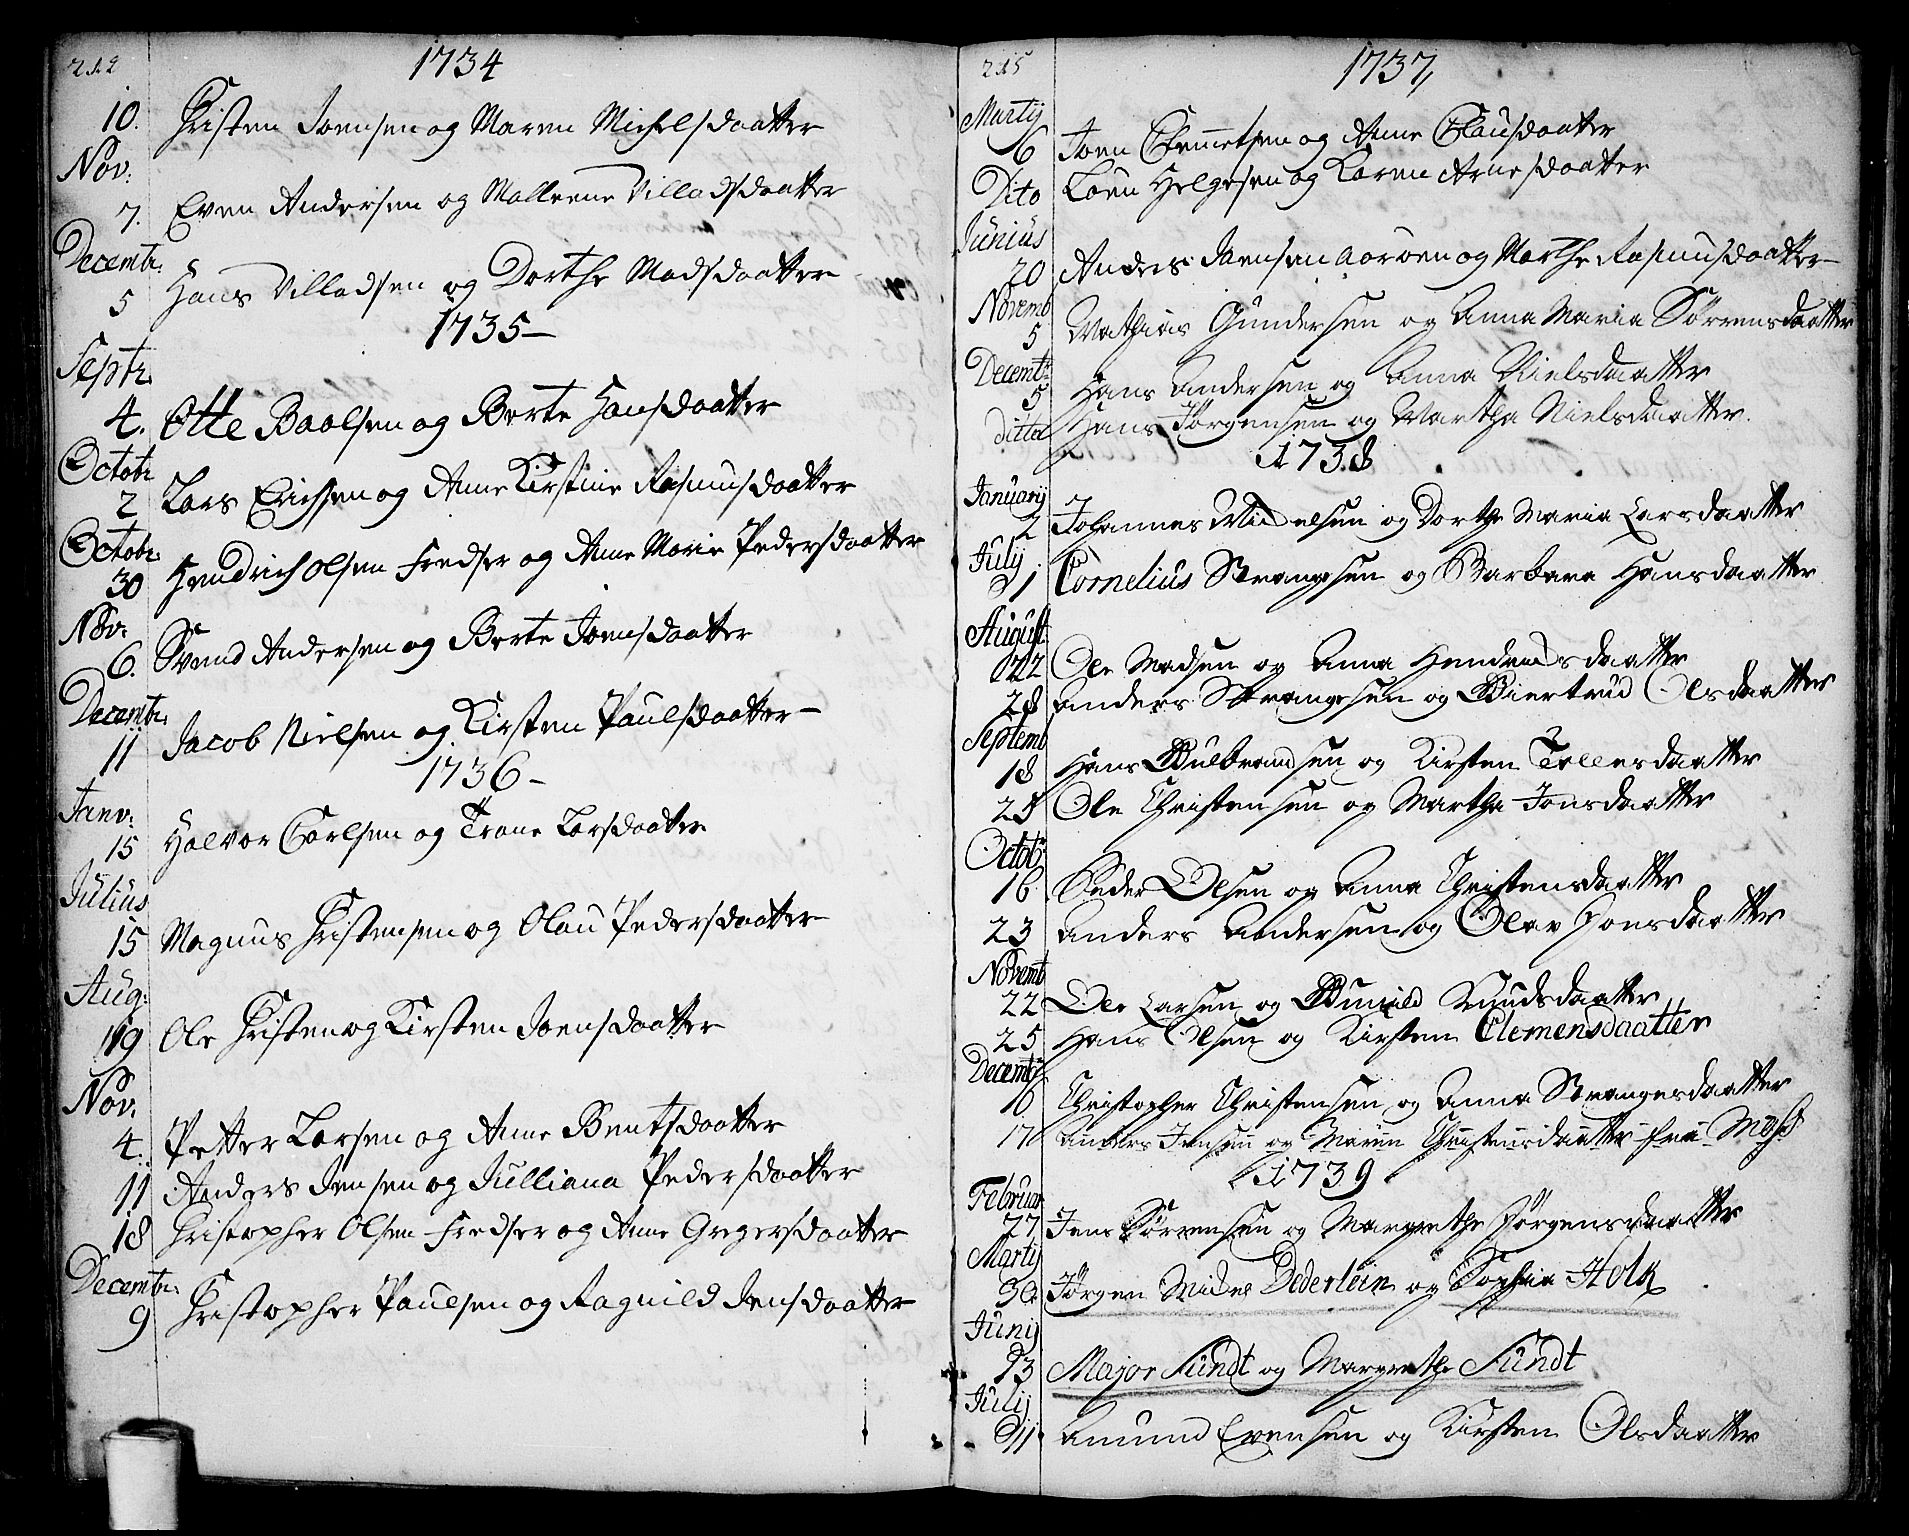 212
1734
10. Christen Joensen og Maren Michelsdaatter
Nov:
7. Even Andersen og Malleene Villadsdaatter
Decembr:
5 Hans Villadsen og Dorthe Madsdaatter
1735
Septr.
4. Otte Baalsen og Berte Hansdaatter
Octobr
2 Lars Erichsen og Anne Kirstine Rasmusdaatter
Octobr:
30 Hendrich Olsen Fredser og Anne Marie Pedersdaatter
Nov:
6. Svend Andersen og Berte Joensdaatter
Decembr:
11 Jacob Nielsen og Kirsten Paulsdaatter
1736
Janv:
15 Halvor Carlsen og Trane Larsdaatter
Julius
15 Magnus Christensen og Olau Pedersdaatter
Aug:
19 Ole Christen og Kirsten Joensdaatter
Nov.
4. Petter Larsen og Anne Bentsdaatter
11 Anders Jensen og Julliana Pedersdaatter
18 Christopher Olsen Fredser og Anne Gregersdaatter
Decembr:
9 Christopher Paulsen og Ragnild Jensdaatter
215
1737
Martij
6 Joen Clemetsen og Anne Clausdaatter
Dito Loen Helgesen og Karen Arnesdaatter
Junius
20 Anders Jaensen Aaroen og Marthe Rasmusdaatter
Novemb
5 Mathias Gundersen og Anna Maria Sørrensdaatter
Decembr
5 Hans Andersen og Anna Nielsdaatter
ditto Hans Jørgensen og Martha Nielsdaatter.
1738
Januarij
2 Johannes Michelsen og Dorthe Maria Larsdaatter
Julij
Cornelius Strangesen og Barbara Hansdaatter
August
Ole Madsen og Anna Hendrichsdaatter
28 Anders Strangesen og Giertrud Olsdaatter
Septemb
18 Hans Gulbrandsen og Kirsten Tollesdaatter
Ole Christensen og Martha Jonsdaatter
Octob:
16 Peder Olsen og Anna Christensdaatter
23 Anders Andersen og Olav Jonsdaatter
Novemb
22 Ole Larsen og Gunild Knudsdaatter
25 Hans Olsen og Kirsten Clemensdaatter
Decembr
Christopher Christensen og Anna Strangesdaatter
17 Anders Jensen og Maren Christensdaatter fra
1739
Februar
27 Jens Sørrensen og Margrethe Jørgensdaatter
Martij
Jørgen Michel Dederlein og Sophia Holk
Junij
13 Major Fundt og Margrethe Fundt
Julij
11 Amund Evensen og Kirsten Olsdaatter